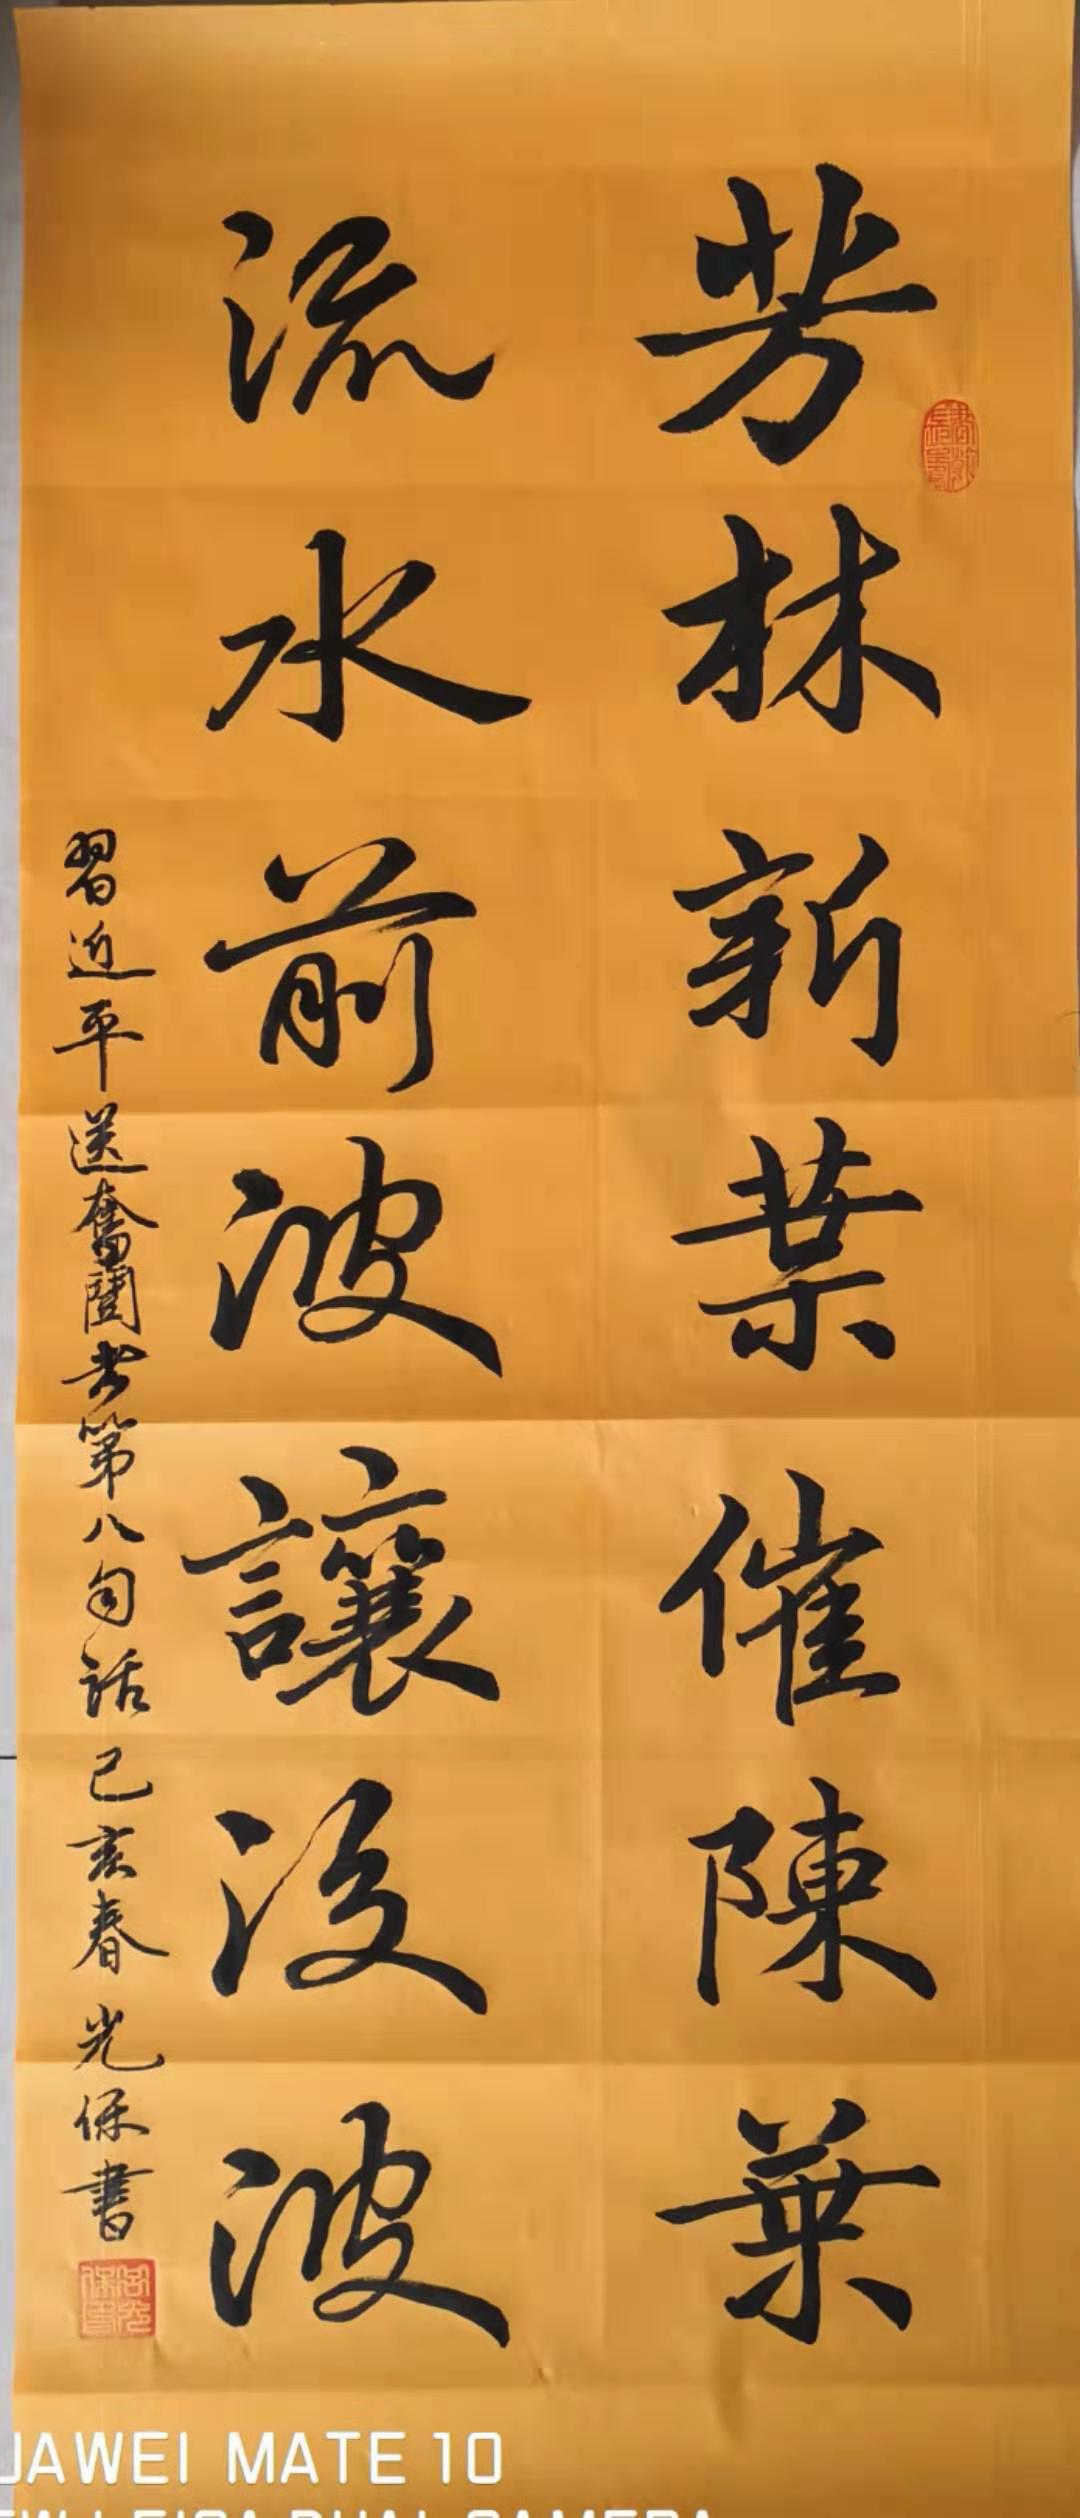 芳林新葉催陳葉
流水前波讓後波
習近平送奮鬪者第八句話己亥春光保書
UAWEI MATE 10